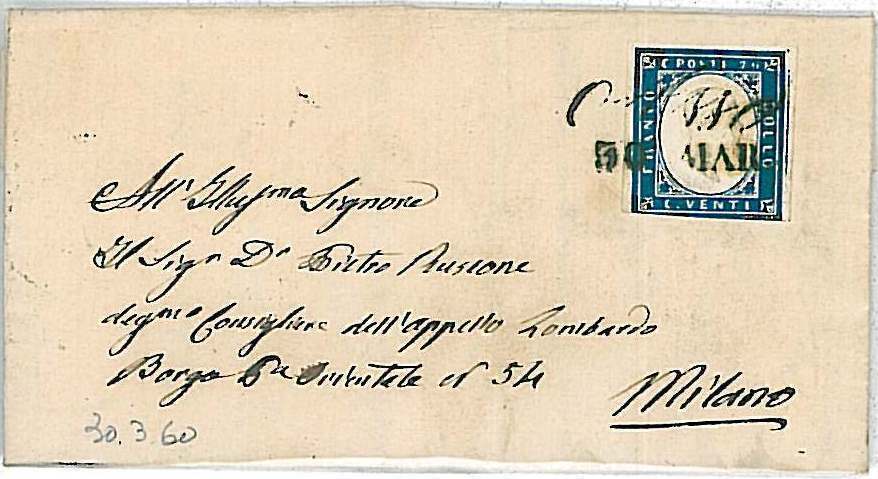 C. POSTE 20
FRANCO
BOLLO
C. VENTI
30 MAR
All' Illus.ma Signore
Il Sig.r D.r Pietro
deg.mo Consigliere dell'appello Lombardo
Borgo P.ta Orientale N° 54
Milano
30.3.60